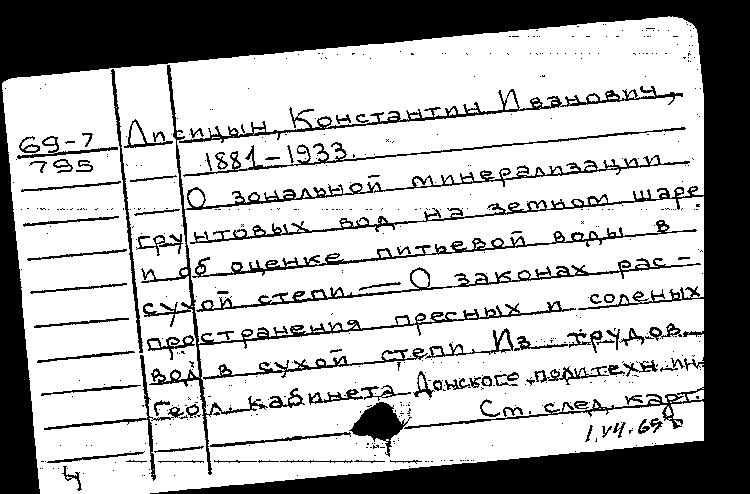 69-7
795
Лисицын, Константин Иванович,
1881-1933.
О зональной минерализации
грунтовых вод на земном шаре
и об оценке питьевой воды в
сухой степи. — О законах рас-
пространения пресных и соленых
вод в сухой степи. Из трудов
Геол. кабинета Донского политехн. ин-
Ст. след. карт.
4